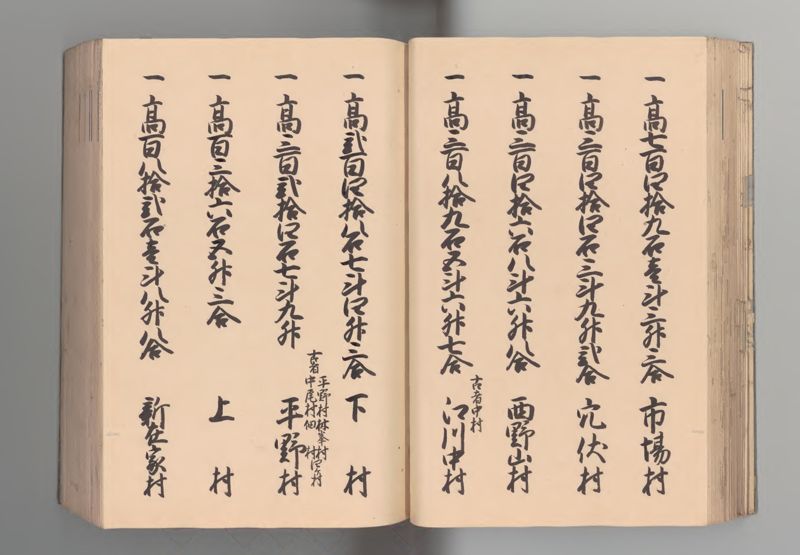 一高七百四拾九石壱斗三舛三合 市場村
一高三百四拾四石三斗九舛弐合 穴伏村
一高三百四拾六石八斗六舛八合 西野山村
一高三百八拾九石五斗六舛七合 江川中村
古者中村
一高弐百四拾八石七斗四舛三合 下村
一高三百弐拾四石七斗九舛 平野村
古者平野村
中尾村
一高百三拾六石五舛三合 上村
一高百八拾弐石壱斗八舛八合 新在家村